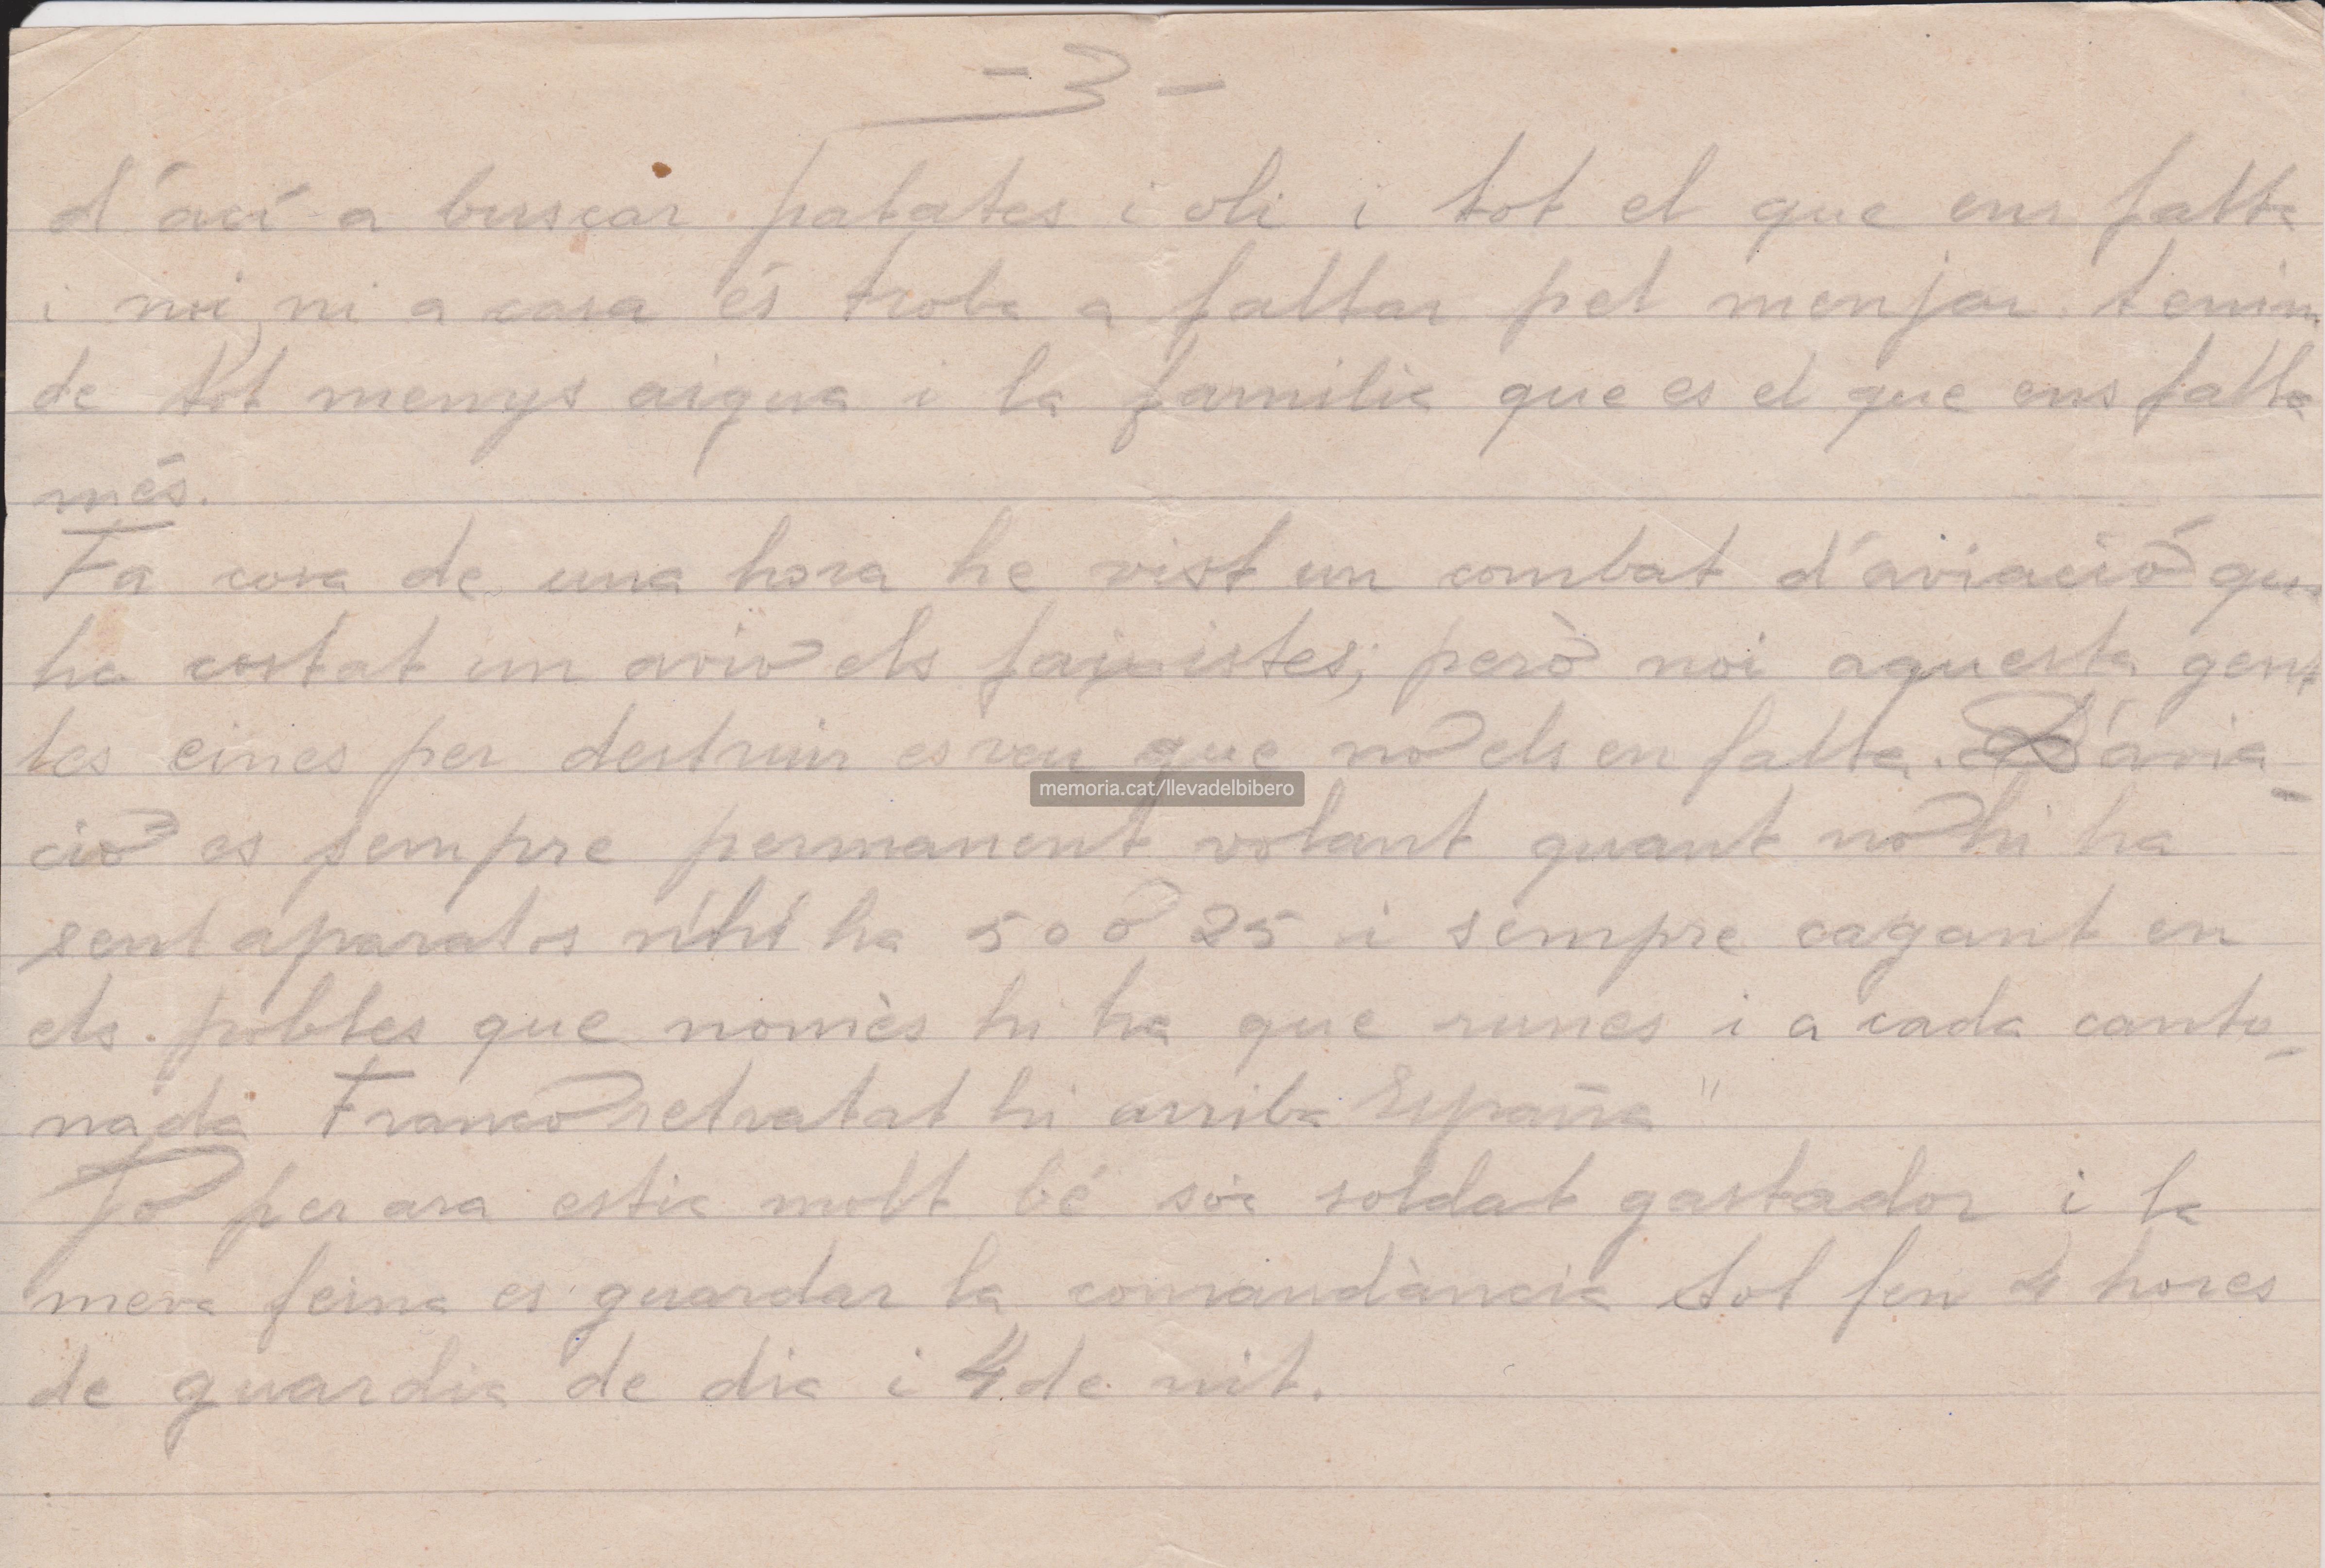 - 3 -
d'ací a buscar patates i oli i tot el que ens falta
i noi, ni a casa és troba a faltar pel menjar. tenim
de tot menys aigua i la familia que es el que ens falta
més.
Fa cosa de una hora he vist un combat d'aviació que
ha costat un avio els faixistes; però noi aquesta gent
les eines per destruir es veu que no els en falta. D'avia-
ció es sempre permanent volant quant no hi ha
sent aparatos n'hi ha 50 o 25 i sempre cagant en
els pobles que nomès hi ha que runes i a cada canto-
nada Franco retratat hi arriba España"
Jo per ara estic molt bé sóc soldat gastador i la
meva feina es guardar la comandància tot fen 4 hores
de guardia de dia i 4 de nit.
memoria.cat/llevadelbibero